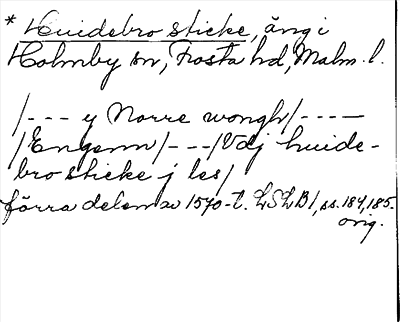 * Huidebro sticke, äng i
Holmby sn, Frosta hd, Malm. l.
/--- y Norre wongh/----
/Engenn/---/Vdj huide-
bro sticke j les/
förra delen av 1570-t. LSLB1, ss. 184, 185.
orig.